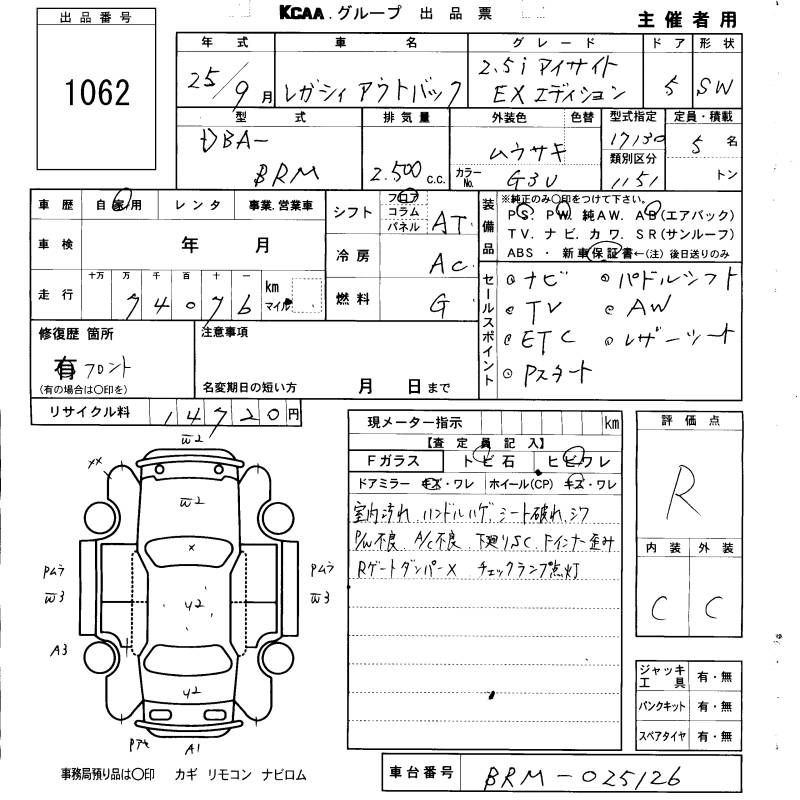 出品番号
1062
KCAA グループ 出品票
主催者用
年式 車名 グレード ドア 形状
25/9月 レガシィ アウトバック 2.5i アイサイト EX エディション 5 SW
型式 排気量 外装色 色替 型式指定 定員・積載
DBA-BRM 2.500 c.c. ムラサキ 17130 5名
カラーNo. G3U 類別区分 1151 トン
車歴 自家用 レンタ 事業.営業車
車検 年 月
走行 十万 万 千 百 十 一 km マイル
74076
シフト フロア コラム パネル AT
冷房 AC
燃料 G
装備品 ※純正のみ〇印をつけて下さい。
PS. PW. 純AW. AB(エアバック)
TV. ナビ. カワ. SR(サンルーフ)
ABS ・ 新車保証書←(注) 後日送りのみ
セールスポイント
ナビ パドルシフト
TV AW
ETC レザーシート
Pスタート
修復歴 箇所
有 フロント
(有の場合は〇印を)
注意事項
名変期日の短い方 月 日まで
リサイクル料 14720円
現メーター指示 km
【査定員記入】
Fガラス トビ石 ヒビワレ
ドアミラー キズ・ワレ ホイール(CP) キズ・ワレ
室内汚れ ハンドルハゲ、シート破れ、シワ
P/W不良 A/C不良 下廻りSC Fインナー歪み
Rゲートダンパー× チェックランプ点灯
評価点
R
内装 外装
C C
W2
XX
W2
X
Pムラ
W3
U2
Pムラ
W3
A3
U2
A1
ジャッキ工具 有・無
パンクキット 有・無
スペアタイヤ 有・無
事務局預り品は〇印 カギ リモコン ナビロム
車台番号 BRM-025126